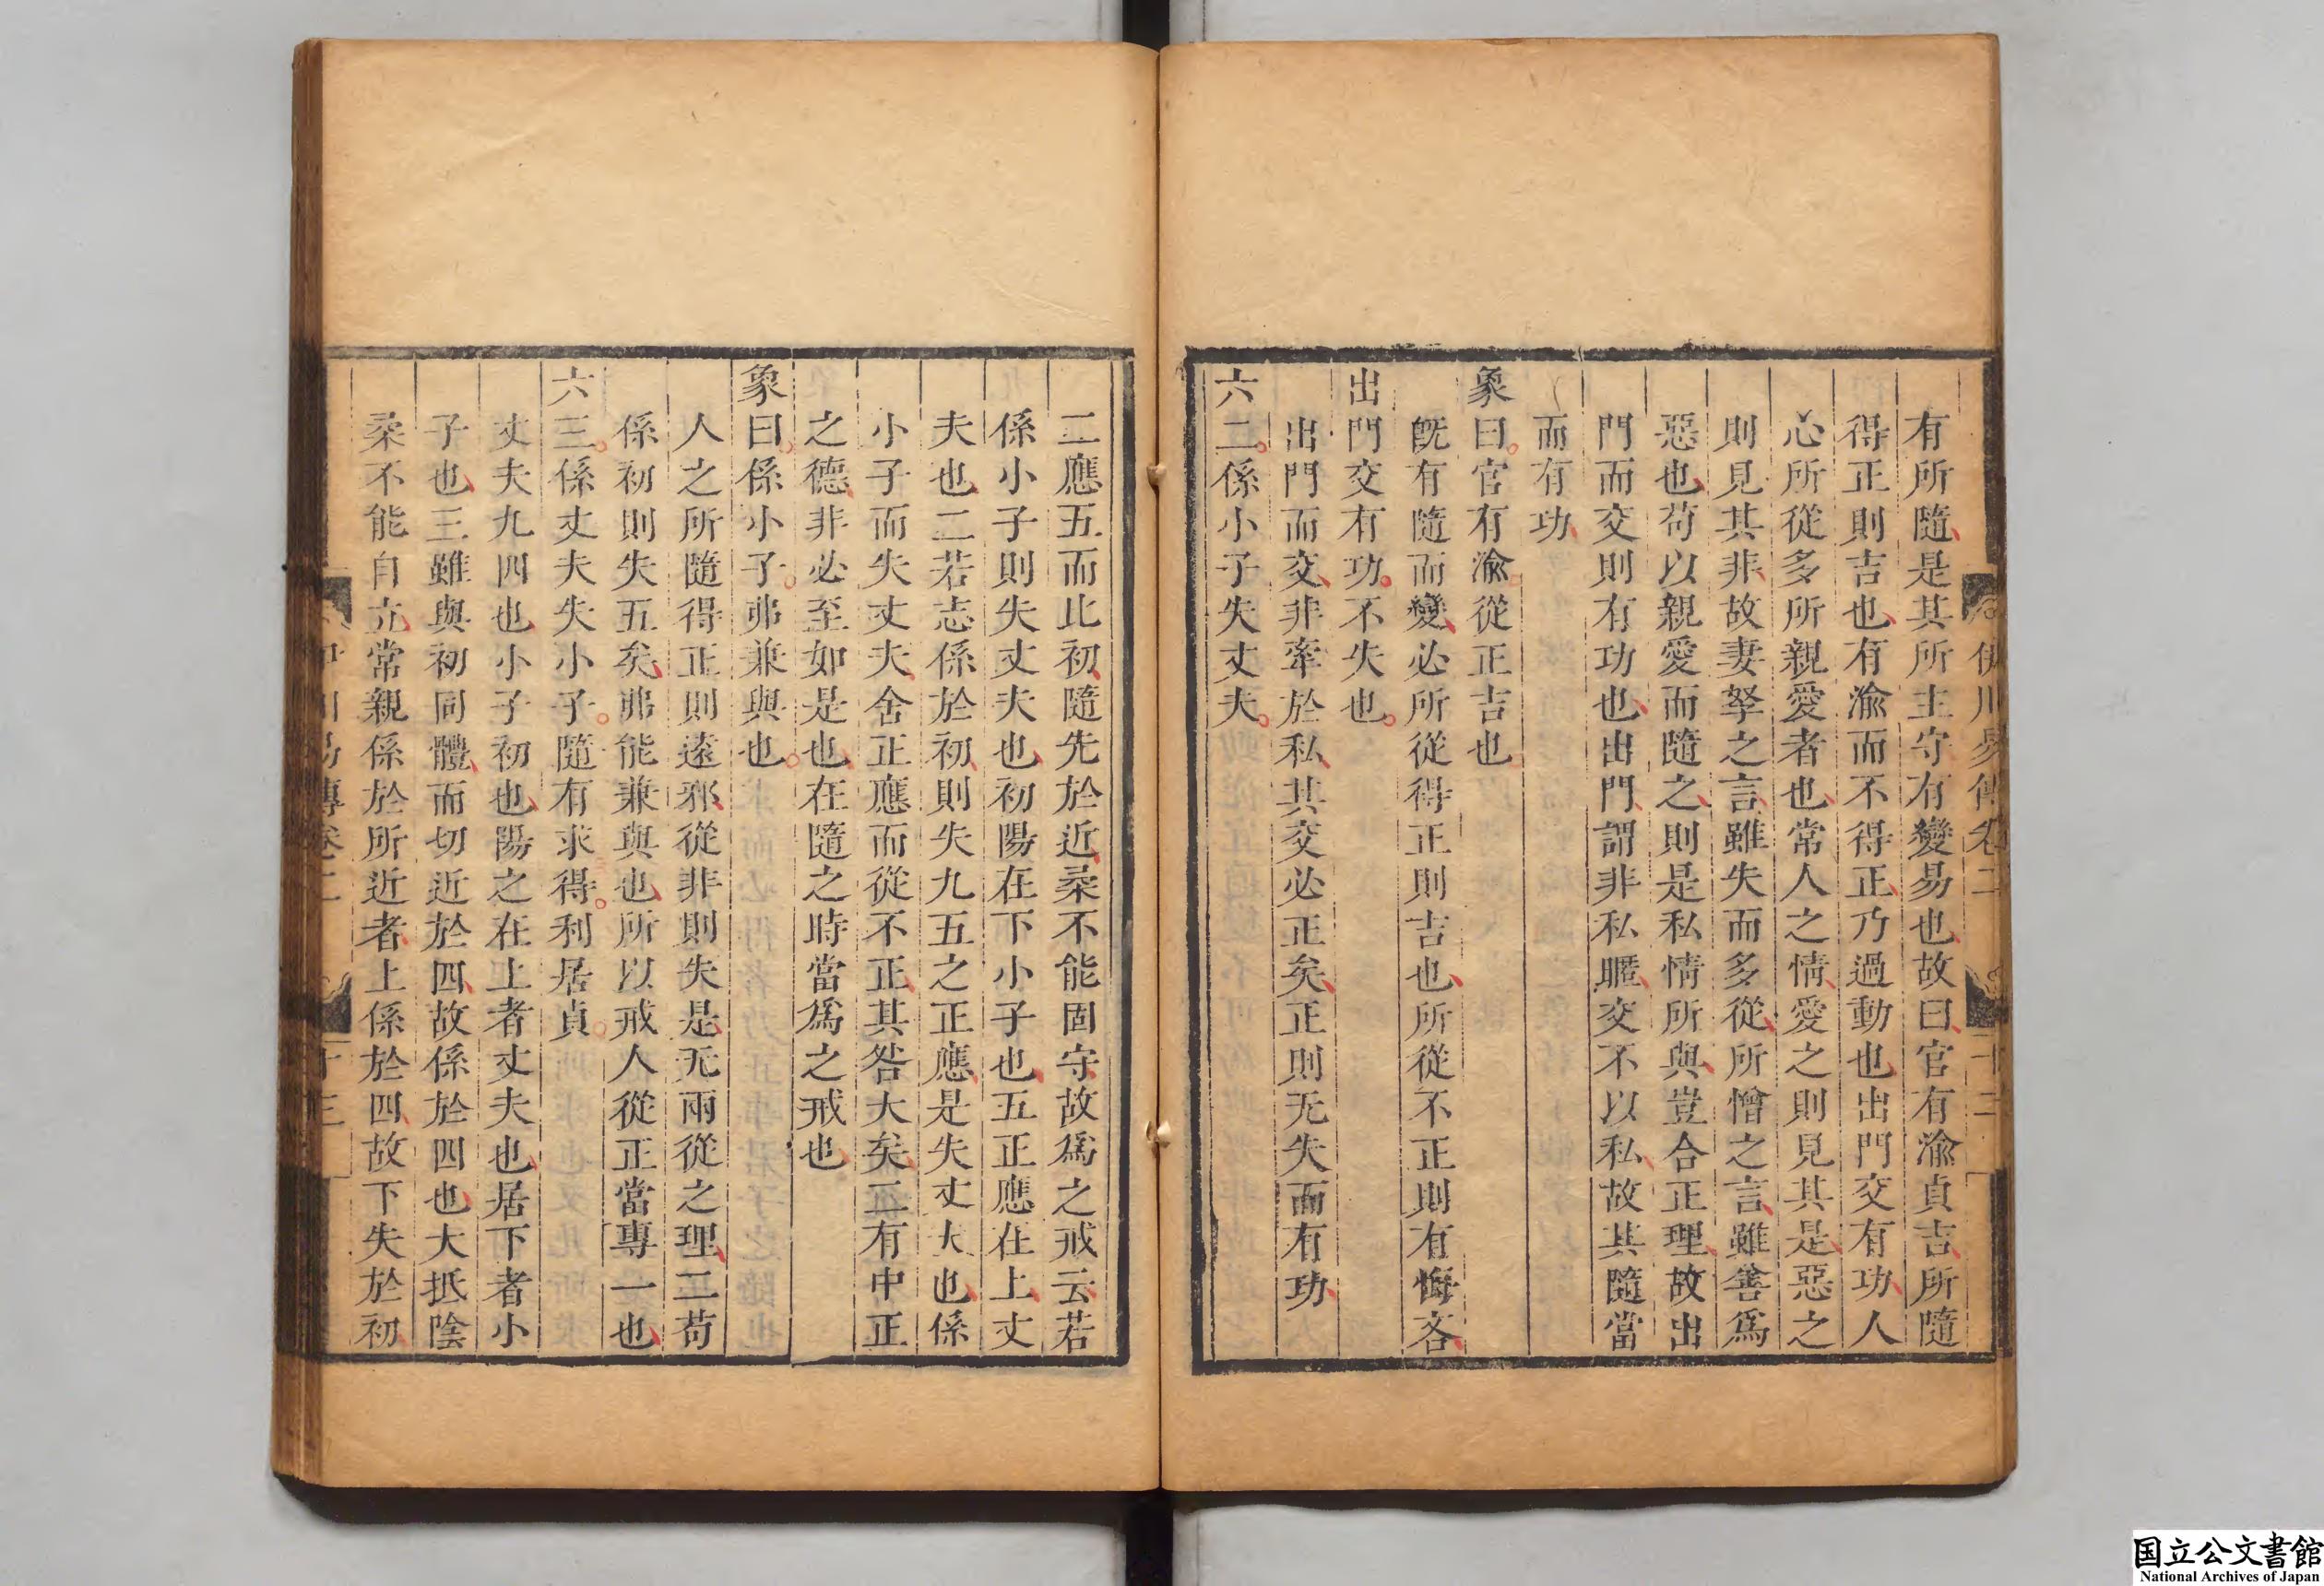 伊川易傳卷二
十二
有所隨是其所主守有變易也故曰官有渝貞吉所隨
得正則吉也有渝而不得正乃過動也出門交有功人
心所從多所親愛者也常人之情愛之則見其是惡之
則見其非故妻孥之言雖失而多從所憎之言雖善爲
惡也苟以親愛而隨之則是私情所與豈合正理故出
門而交則有功也出門謂非私暱交不以私故其隨當
而有功
象曰官有渝從正吉也
旣有隨而變必所從得正則吉也所從不正則有悔吝
出門交有功不失也
出門而交非牽於私其交必正矣正則无失而有功
六二係小子失丈夫
二應五而比初隨先於近柔不能固守故爲之戒云若
係小子則失丈夫也初陽在下小子也五正應在上丈
夫也二若志係於初則失九五之正應是失丈夫也係
小子而失丈夫舍正應而從不正其咎大矣二有中正
之德非必至如是也在隨之時當爲之戒也
象曰係小子弗兼與也
人之所隨得正則遠邪從非則失是无兩從之理二苟
係初則失五矣弗能兼與也所以戒人從正當專一也
六三係丈夫失小子隨有求得利居貞
丈夫九四也小子初也陽之在上者丈夫也居下者小
子也三雖與初同體而切近於四故係於四也大抵陰
柔不能自立常親係於所近者上係於四故下失於初
伊川易傳卷二
十三
国立公文書館
National Archives of Japan